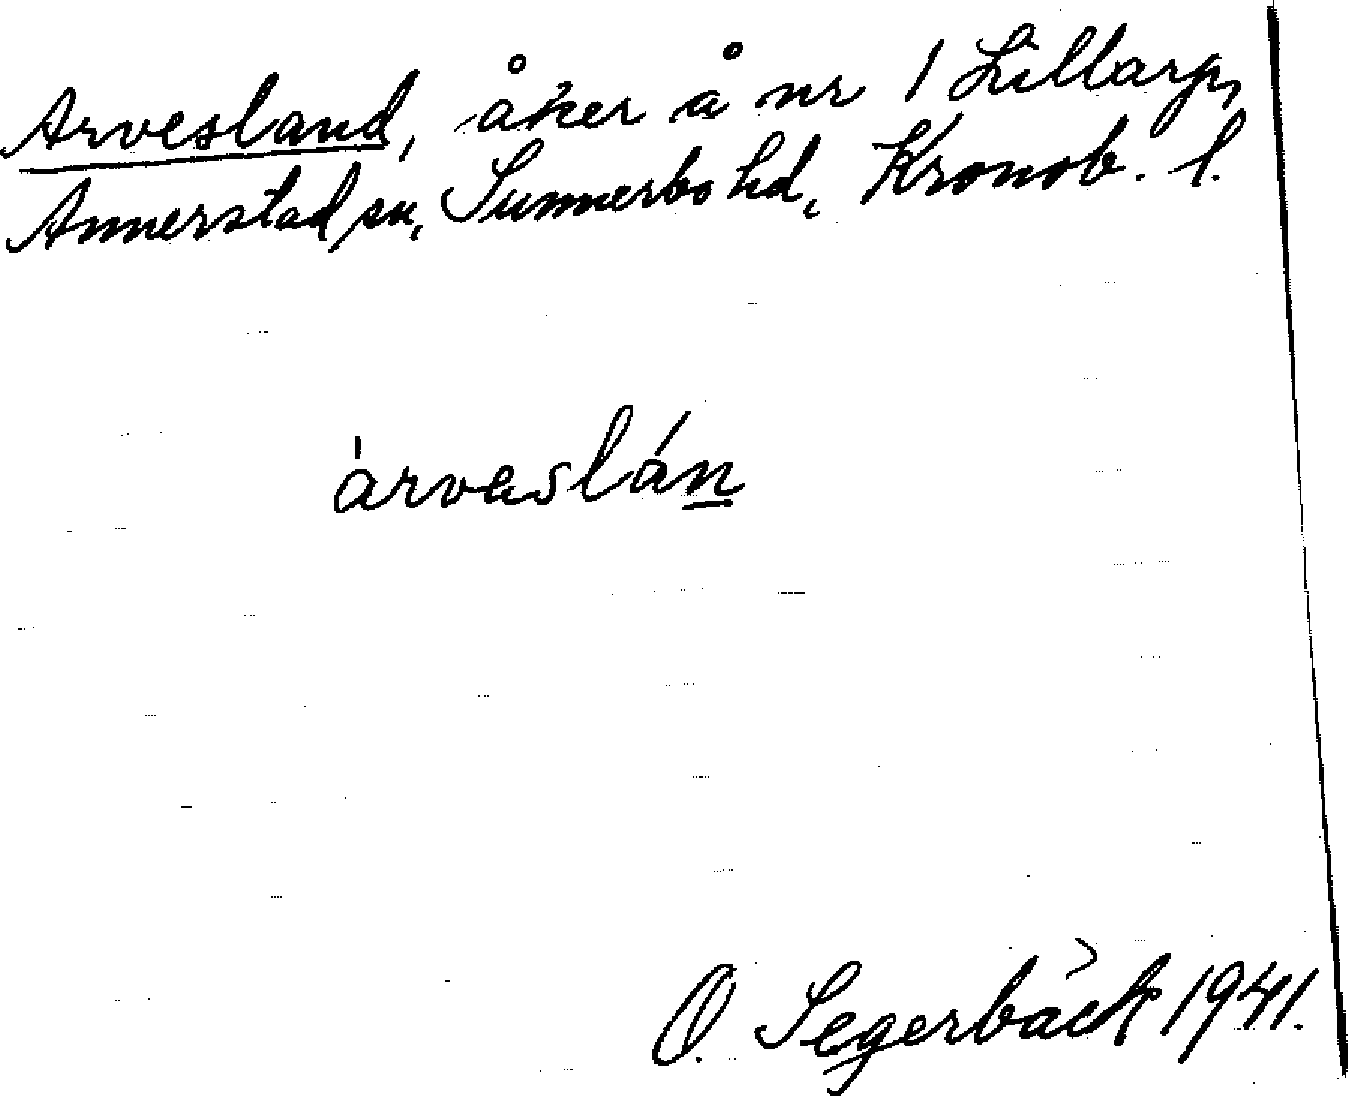 Arvesland, åker å nr 1 Lillarp,
Annerstad sn, Sunnerbo hd, Kronob. l.
àrvaslán
O. Segerbäck 1941.